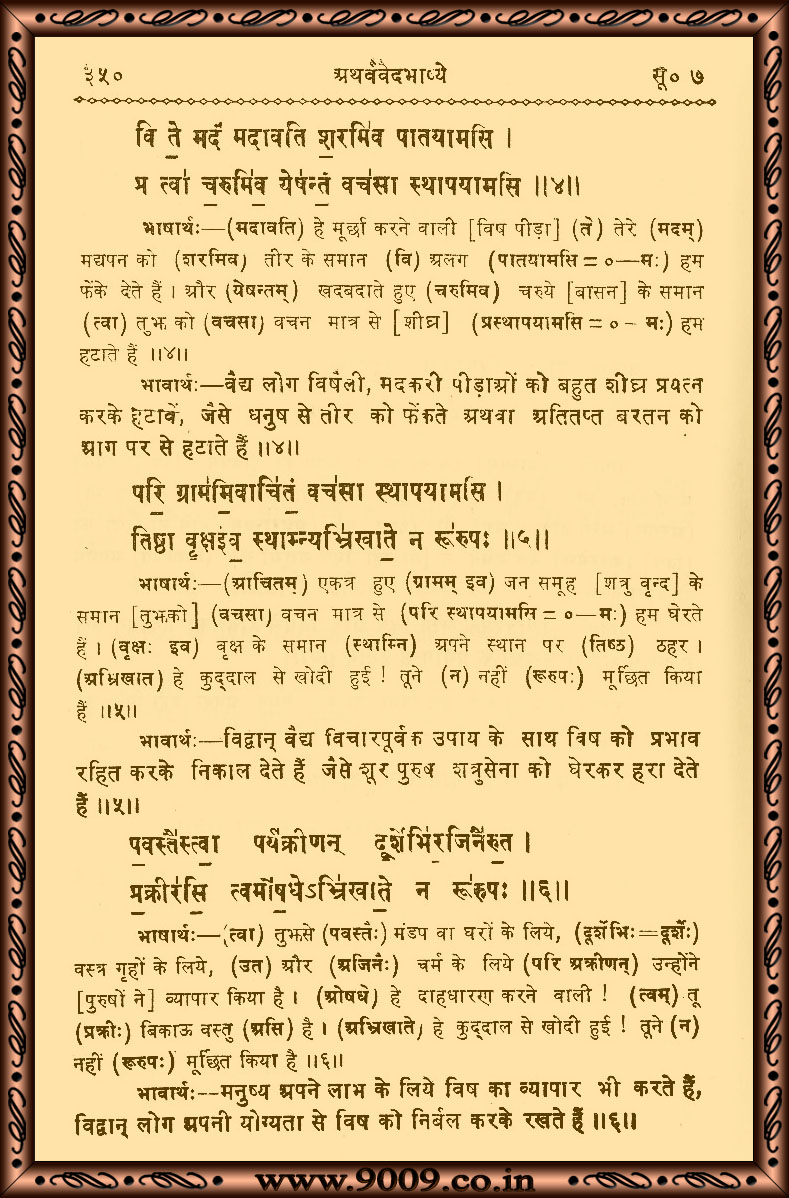 ३५० अथर्ववेदभाष्ये सू० ७
वि ते॒ मदं॑ मदावति श॒रमि॑व पातयामसि ।
प्र त्वा॑ च॒रुमि॑व॒ येष॑न्तं॒ वच॑सा स्थापयामसि ॥४॥
भाषार्थः—(मदावति) हे मूर्छा करने वाली [विष पीड़ा] (ते) तेरे (मदम्)
मद्यपन को (शरमिव) तीर के समान (वि) अलग (पातयामसि = ०—मः) हम
फेंके देते हैं । और (येषन्तम्) खदबदाते हुए (चरुमिव) चरुये [बासन] के समान
(त्वा) तुझ को (वचसा) वचन मात्र से [शीघ्र] (प्रस्थापयामसि = ० - मः) हम
हटाते हैं ॥४॥
भावार्थः—वैद्य लोग विषैली, मदकरी पीड़ाओं को बहुत शीघ्र प्रयत्न
करके हटावें, जैसे धनुष से तीर को फेंकते अथवा अतितप्त बरतन को
आग पर से हटाते हैं ॥४॥
परि॒ ग्राम॑मि॒वाचि॑तं॒ वच॑सा स्थापयामसि ।
तिष्ठा॑ वृ॒क्षइ॑व॒ स्थाम्न्यभ्रि॑खाते॒ न रू॑रुपः ॥५॥
भाषार्थः—(आचितम्) एकत्र हुए (ग्रामम् इव) जन समूह [शत्रु वृन्द] के
समान [तुझको] (वचसा) वचन मात्र से (परि स्थापयामसि = ०—मः) हम घेरते
हैं । (वृक्षः इव) वृक्ष के समान (स्थाम्नि) अपने स्थान पर (तिष्ठ) ठहर ।
(अभ्रिखात) हे कुद्दाल से खोदी हुई ! तूने (न) नहीं (रूरुपः) मूर्छित किया
हैं ॥५॥
भावार्थः—विद्वान् वैद्य विचारपूर्वक उपाय के साथ विष को प्रभाव
रहित करके निकाल देते हैं जैसे शूर पुरुष शत्रुसेना को घेरकर हरा देते
हैं ॥५॥
प॒वस्तै॑स्त्वा॒ पर्य॑क्रीणन् दू॒र्शेभि॑र॒जिनै॑रु॒त ।
प्र॒क्रीर॑सि॒ त्वमो॑ष॒धेऽभ्रि॑खाते॒ न रू॑रुपः ॥६॥
भाषार्थः—(त्वा) तुझसे (पवस्तैः) मंडप वा घरों के लिये, (दूर्शेभिः=दूर्शैः)
वस्त्र गृहों के लिये, (उत) और (अजिनैः) चर्म के लिये (परि अक्रीणन्) उन्होंने
[पुरुषों ने] व्यापार किया है । (ओषधे) हे दाहधारण करने वाली ! (त्वम्) तू
(प्रक्रीः) बिकाऊ वस्तु (असि) है । (अभ्रिखाते) हे कुद्दाल से खोदी हुई ! तूने (न)
नहीं (रूरुपः) मूर्छित किया है ॥६॥
भावार्थः--मनुष्य अपने लाभ के लिये विष का व्यापार भी करते हैं,
विद्वान् लोग अपनी योग्यता से विष को निर्बल करके रखते हैं ॥६॥
www.9009.co.in